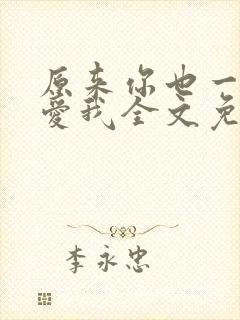 原来你也一
爱我全文免
李永忠